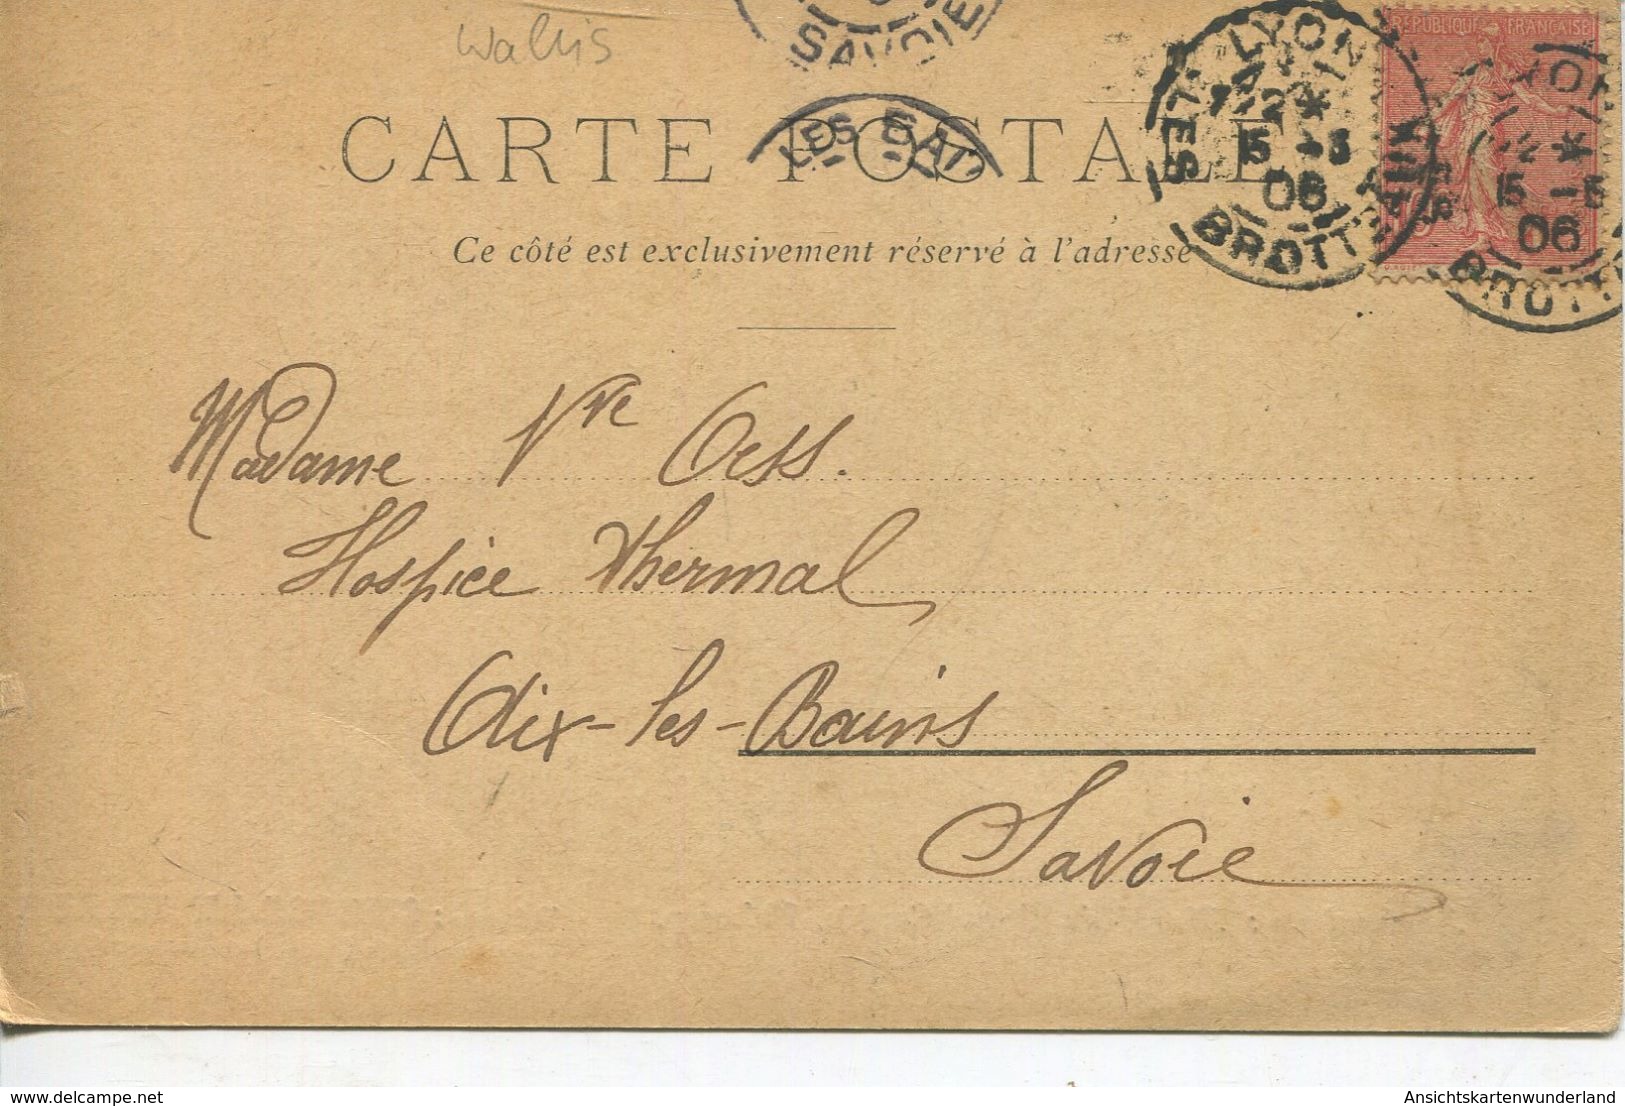 Wallis
SAVOIE
LES BAI
CARTE POSTALE
Ce côté est exclusivement réservé à l'adresse
RÉPUBLIQUE FRANÇAISE
LYON
LES
15 -5
06
BROTTEAUX
15 -5
06
BROTT
Madame Vve Oess.
Hospice Thermal
Aix-les-Bains
Savoie
delcampe.net
Ansichtskartenwunderland